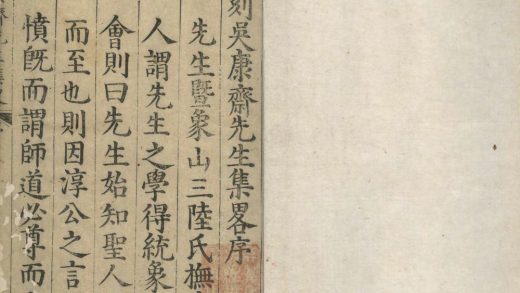 刻吳康齋先生集畧序
先生暨象山三陸氏撫
人謂先生之學得統象
會則曰先生始知聖人
而至也則因淳公之言
憤既而謂師道必尊而